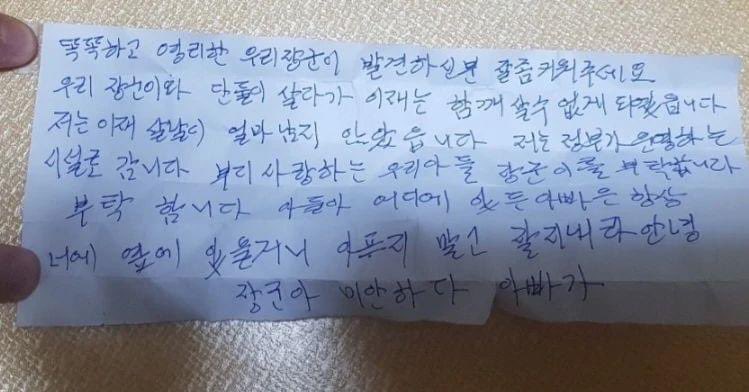 똑똑하고 영리한 우리장군이 발견하신분 잘좀키워주세요
우리 장군이와 단둘이 살다가 이재는 함깨 살수 없게 되였읍니다
저는 이재 살날이 얼마 남지 안았읍니다 저는 정부가 운영하는
시설로 갑니다 부디 사랑하는 우리아들 장군이를 부탁합니다
부탁 합니다 아들아 어디에 있든 아빠은 항상
너에 옆에 있을거니 아푸지 말고 잘지내라 안녕
장군아 미안하다 아빠가